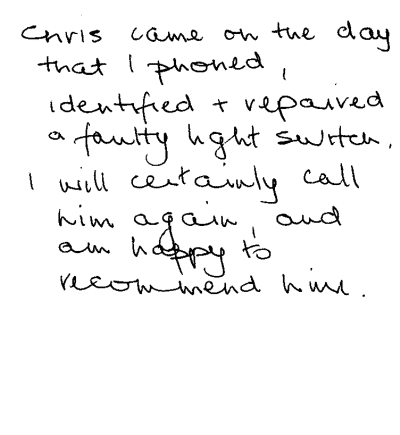 Chris came on the day
that I phoned,
identified + repaired
a faulty light switch.
I will certainly call
him again, and
am happy to
recommend him.